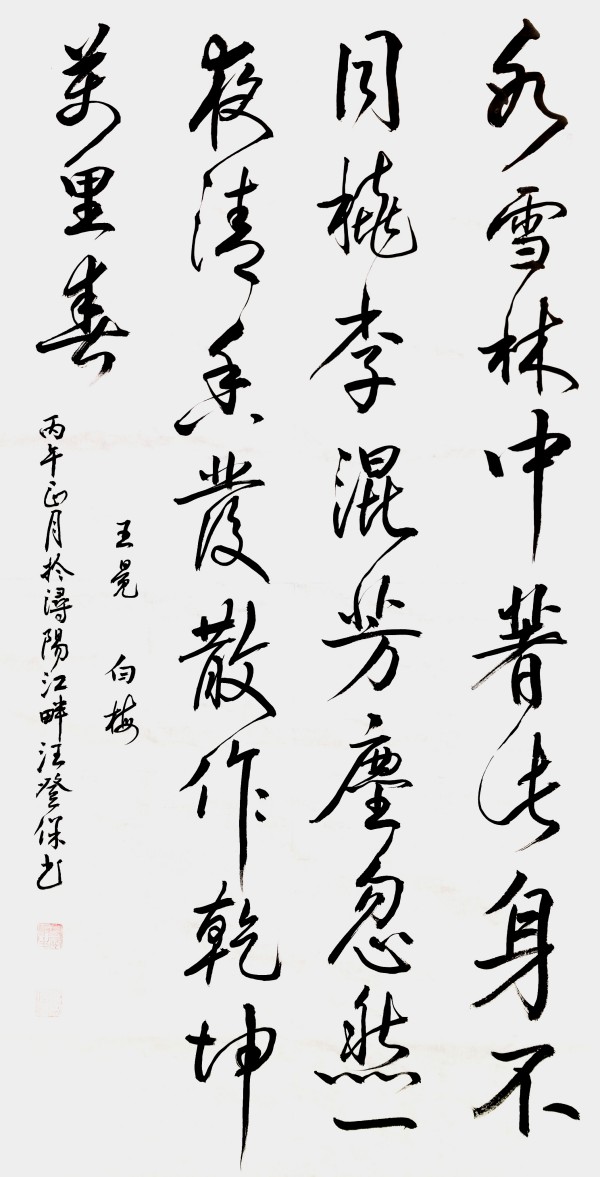 冰雪林中著此身不
同桃李混芳塵忽然一
夜清香發散作乾坤
萬里春
王冕 白梅
丙午正月於潯陽江畔汪登保书